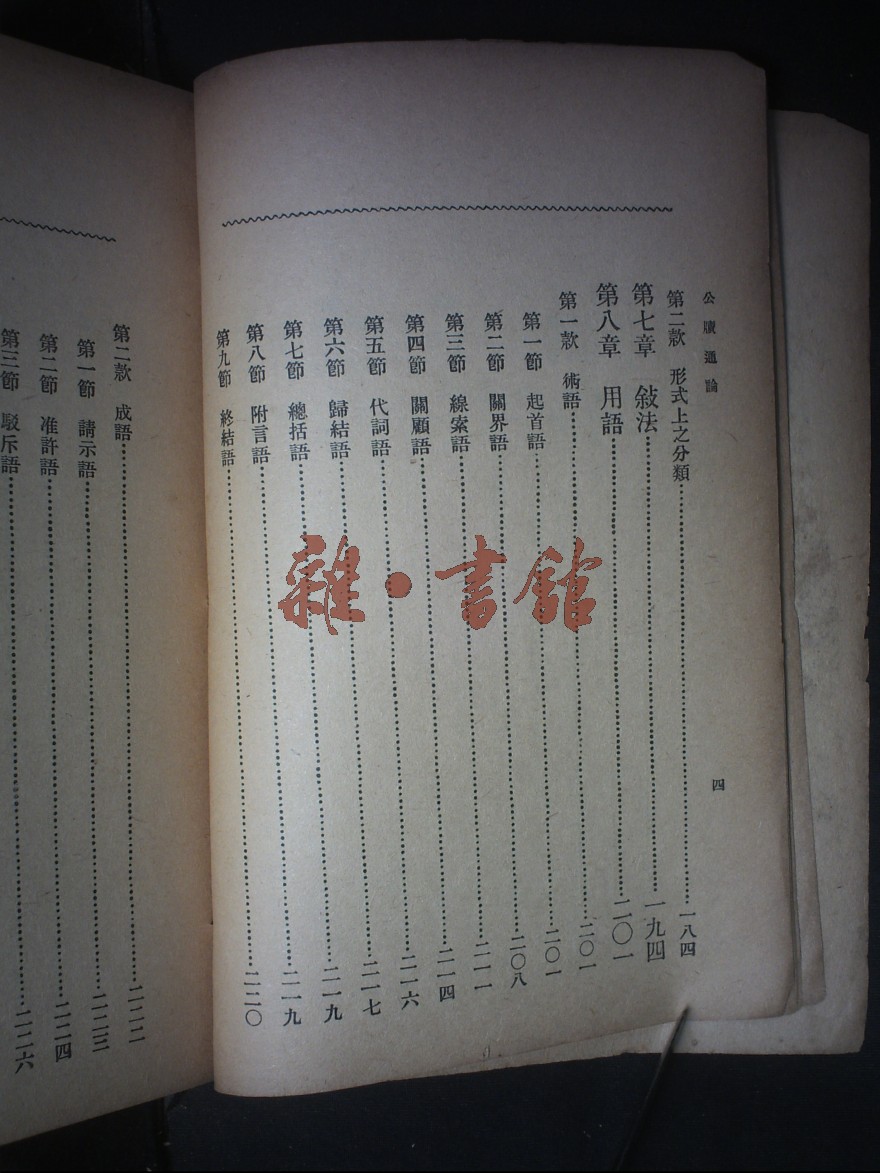 公牘通論
四
第二款 形式上之分類……一八四
第七章 敍法……一九四
第八章 用語……二〇一
第一款 術語……二〇一
第一節 起首語……二〇一
第二節 關界語……二〇八
第三節 線索語……二一一
第四節 關顧語……二一四
第五節 代詞語……二一六
第六節 歸結語……二一七
第七節 總括語……二一九
第八節 附言語……二一九
第九節 終結語……二二〇
第二款 成語……二二二
第一節 請示語……二二三
第二節 准許語……二二四
第三節 駁斥語……二二六
雜·書館